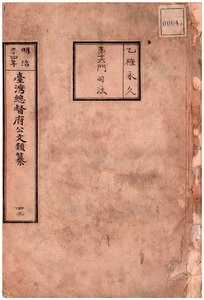 乙種永久
第十六門司法
明治
三十四年
臺灣總督府公文類纂
四三